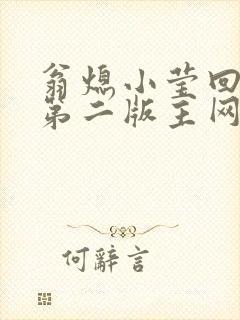 翁熄小莹回
第二版主网
何辞言